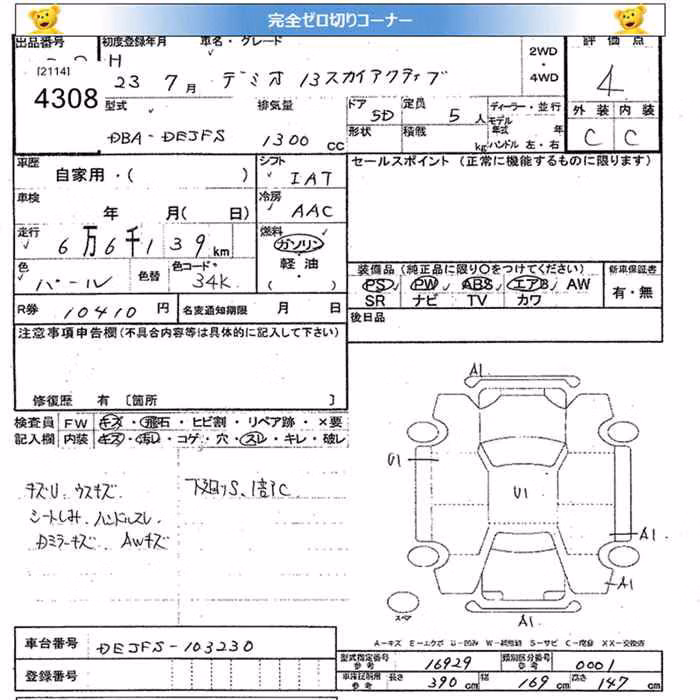 完全ゼロ切りコーナー
出品番号 初度登録年月 車名・グレード 2WD・4WD 評価点
[2114]
4308
H 23 7月 デミオ 13スカイアクティブ 4
型式 排気量 ドア 定員 ディーラー・並行 外装 内装
DBA-DEJFS 1300 CC 5D 5人 モデル年式 年 C C
形状 積載 kg ハンドル 左・右
車歴 自家用・( ) シフト IAT セールスポイント (正常に機能するものに限ります)
車検 年 月( 日) 冷房 AAC
走行 6万6千139km 燃料 ガソリン・軽油・( )
色 パール 色替 色コード 34K 装備品 (純正品に限り○をつけてください) 新車保証書
PS PW ABS エアB AW 有・無
SR ナビ TV カワ
R券 10410円 名変通知期限 月 日 後日品
注意事項申告欄(不具合内容等は具体的に記入して下さい)
修復歴 有 〔箇所 〕
検査員 FW キズ・飛石・ヒビ割・リペア跡・×要
記入欄 内装 キズ・汚れ・コゲ・穴・スレ・キレ・破レ
キズU ウスキズ 下廻りS、
シートしみ、ハンドルスレ
Dミラーキズ AWキズ
A1
U1
U1
A1
A1
A1
スペア
A-キズ E-エクボ U-凹み W-補修跡 S-サビ C-腐食 XX-交換済
車台番号 DEJFS-103230
登録番号
型式指定番号 参考 16929 類別区分番号 参考 0001
車庫証明用 参考 長さ 390 cm 幅 169 cm 高さ 147 cm